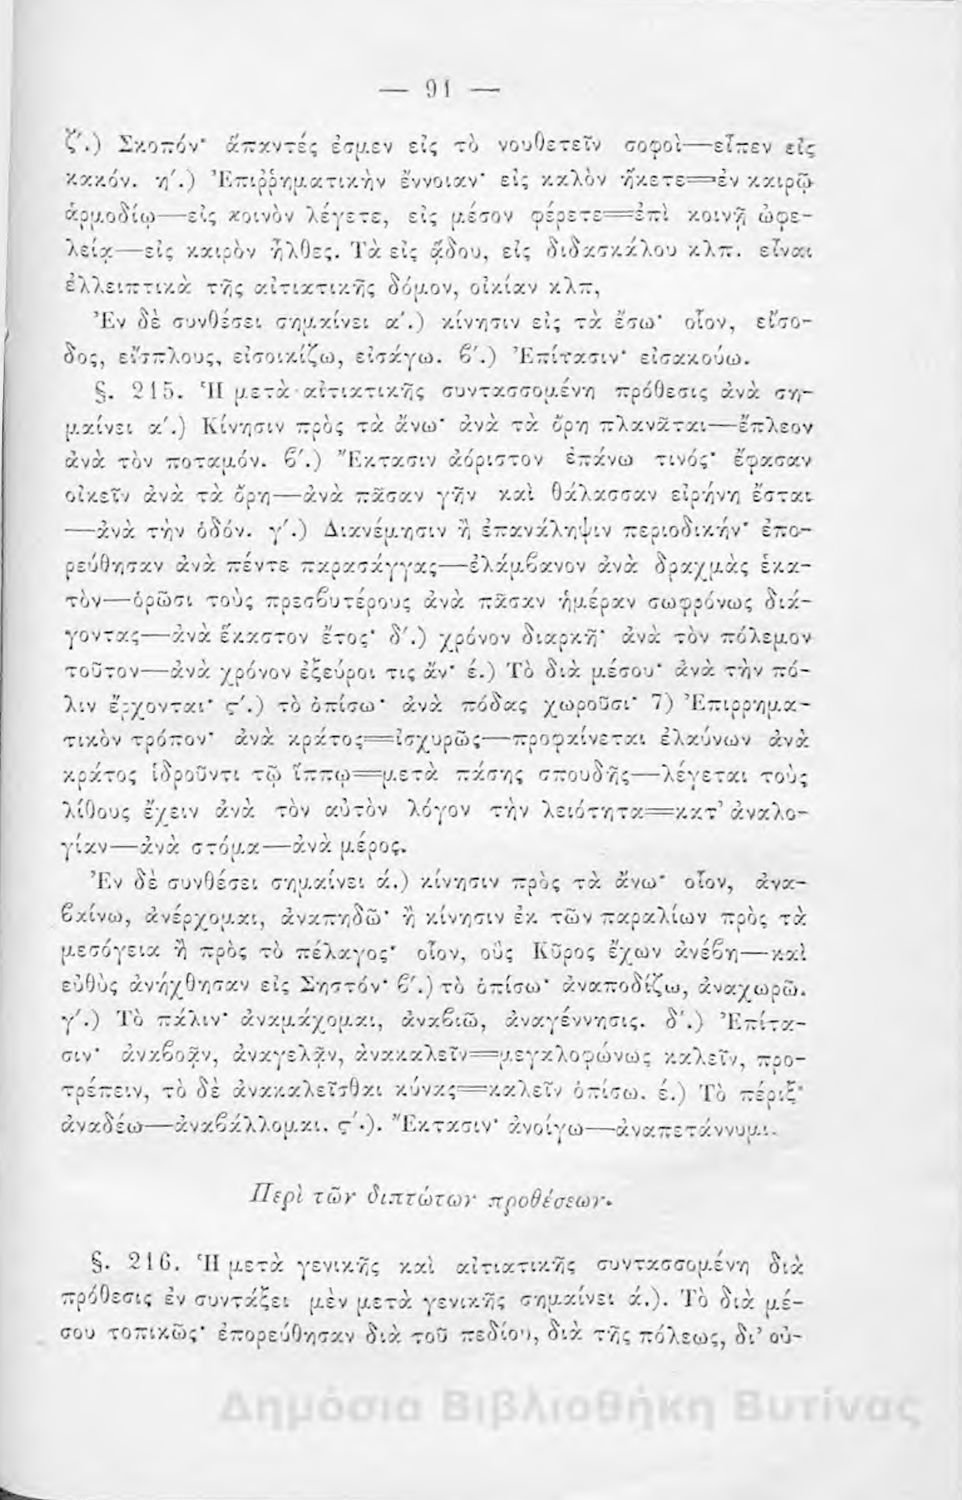 — 91 —
ζ΄.) Σκοπόν· ἅπαντές ἐσμεν εἰς τὸ νουθετεῖν σοφοὶ—εἶπεν εἰς
κακόν. η΄.) Ἐπιῤῥηματικὴν ἔννοιαν· εἰς καλὸν ἥκετε=ἐν καιρῷ
ἁρμοδίῳ—εἰς κοινὸν λέγετε, εἰς μέσον φέρετε=ἐπὶ κοινῇ ὠφε-
λείᾳ—εἰς καιρὸν ἦλθες. Τὰ εἰς ᾅδου, εἰς διδασκάλου κλπ. εἶναι
ἐλλειπτικὰ τῆς αἰτιατικῆς δόμον, οἰκίαν κλπ,
Ἐν δὲ συνθέσει σημαίνει α΄.) κίνησιν εἰς τὰ ἔσω· οἷον, εἴσο-
δος, εἴσπλους, εἰσοικίζω, εἰσάγω. ϐ΄.) Ἐπίτασιν· εἰσακούω.
§. 215. Ἡ μετὰ αἰτιατικῆς συντασσομένη πρόθεσις ἀνὰ ση-
μαίνει α΄.) Κίνησιν πρὸς τὰ ἄνω· ἀνὰ τὰ ὄρη πλανᾶται—ἔπλεον
ἀνὰ τὸν ποταμόν. ϐ΄.) Ἔκτασιν ἀόριστον ἐπάνω τινός· ἔφασαν
οἰκεῖν ἀνὰ τὰ ὄρη—ἀνὰ πᾶσαν γῆν καὶ θάλασσαν εἰρήνη ἔσται
—ἀνὰ τὴν ὁδόν. γ΄.) Διανέμησιν ἢ ἐπανάληψιν περιοδικήν· ἐπο-
ρεύθησαν ἀνὰ πέντε παρασάγγας—ἐλάμϐανον ἀνὰ δραχμὰς ἑκα-
τὸν—ὁρῶσι τοὺς πρεσϐυτέρους ἀνὰ πᾶσαν ἡμέραν σωφρόνως διά-
γοντας—ἀνὰ ἕκαστον ἔτος· δ΄.) χρόνον διαρκῆ· ἀνὰ τὸν πόλεμον
τοῦτον—ἀνὰ χρόνον ἐξεύροι τις ἄν· έ.) Τὸ διὰ μέσου· ἀνὰ τὴν πό-
λιν ἔρχονται· ς΄.) τὸ ὀπίσω· ἀνὰ πόδας χωροῦσι· 7) Ἐπιρρημα-
τικὸν τρόπον· ἀνὰ κράτος=ἰσχυρῶς—προφαίνεται ἐλαύνων ἀνὰ
κράτος ἱδροῦντι τῷ ἵππῳ=μετὰ πάσης σπουδῆς—λέγεται τοὺς
λίθους ἔχειν ἀνὰ τὸν αὐτὸν λόγον τὴν λειότητα=κατ’ ἀναλο-
γίαν—ἀνὰ στόμα—ἀνὰ μέρος.
Ἐν δὲ συνθέσει σημαίνει ά.) κίνησιν πρὸς τὰ ἄνω· οἷον, ἀνα-
ϐαίνω, ἀνέρχομαι, ἀναπηδῶ· ἢ κίνησιν ἐκ τῶν παραλίων πρὸς τὰ
μεσόγεια ἢ πρὸς τὸ πέλαγος· οἷον, οὓς Κῦρος ἔχων ἀνέϐη—καὶ
εὐθὺς ἀνήχθησαν εἰς Σηστόν· ϐ΄.) τὸ ὀπίσω· ἀναποδίζω, ἀναχωρῶ.
γ΄.) Τὸ πάλιν· ἀναμάχομαι, ἀναϐιῶ, ἀναγέννησις. δ΄.) Ἐπίτα-
σιν· ἀναϐοᾷν, ἀναγελᾷν, ἀνακαλεῖν=μεγαλοφώνως καλεῖν, προ-
τρέπειν, τὸ δὲ ἀνακαλεῖσθαι κύνας=καλεῖν ὀπίσω. έ.) Τὸ πέριξ·
ἀναδέω—ἀναϐάλλομαι. ς΄.). Ἔκτασιν· ἀνοίγω—ἀναπετάννυμι.
Περὶ τῶν διπτώτων προθέσεων.
§. 216. Ἡ μετὰ γενικῆς καὶ αἰτιατικῆς συντασσομένη διὰ
πρόθεσις ἐν συντάξει μὲν μετὰ γενικῆς σημαίνει ά.). Τὸ διὰ μέ-
σου τοπικῶς· ἐπορεύθησαν διὰ τοῦ πεδίου, διὰ τῆς πόλεως, δι’ οὐ-
Δημόσια Βιβλιοθήκη Βυτίνας